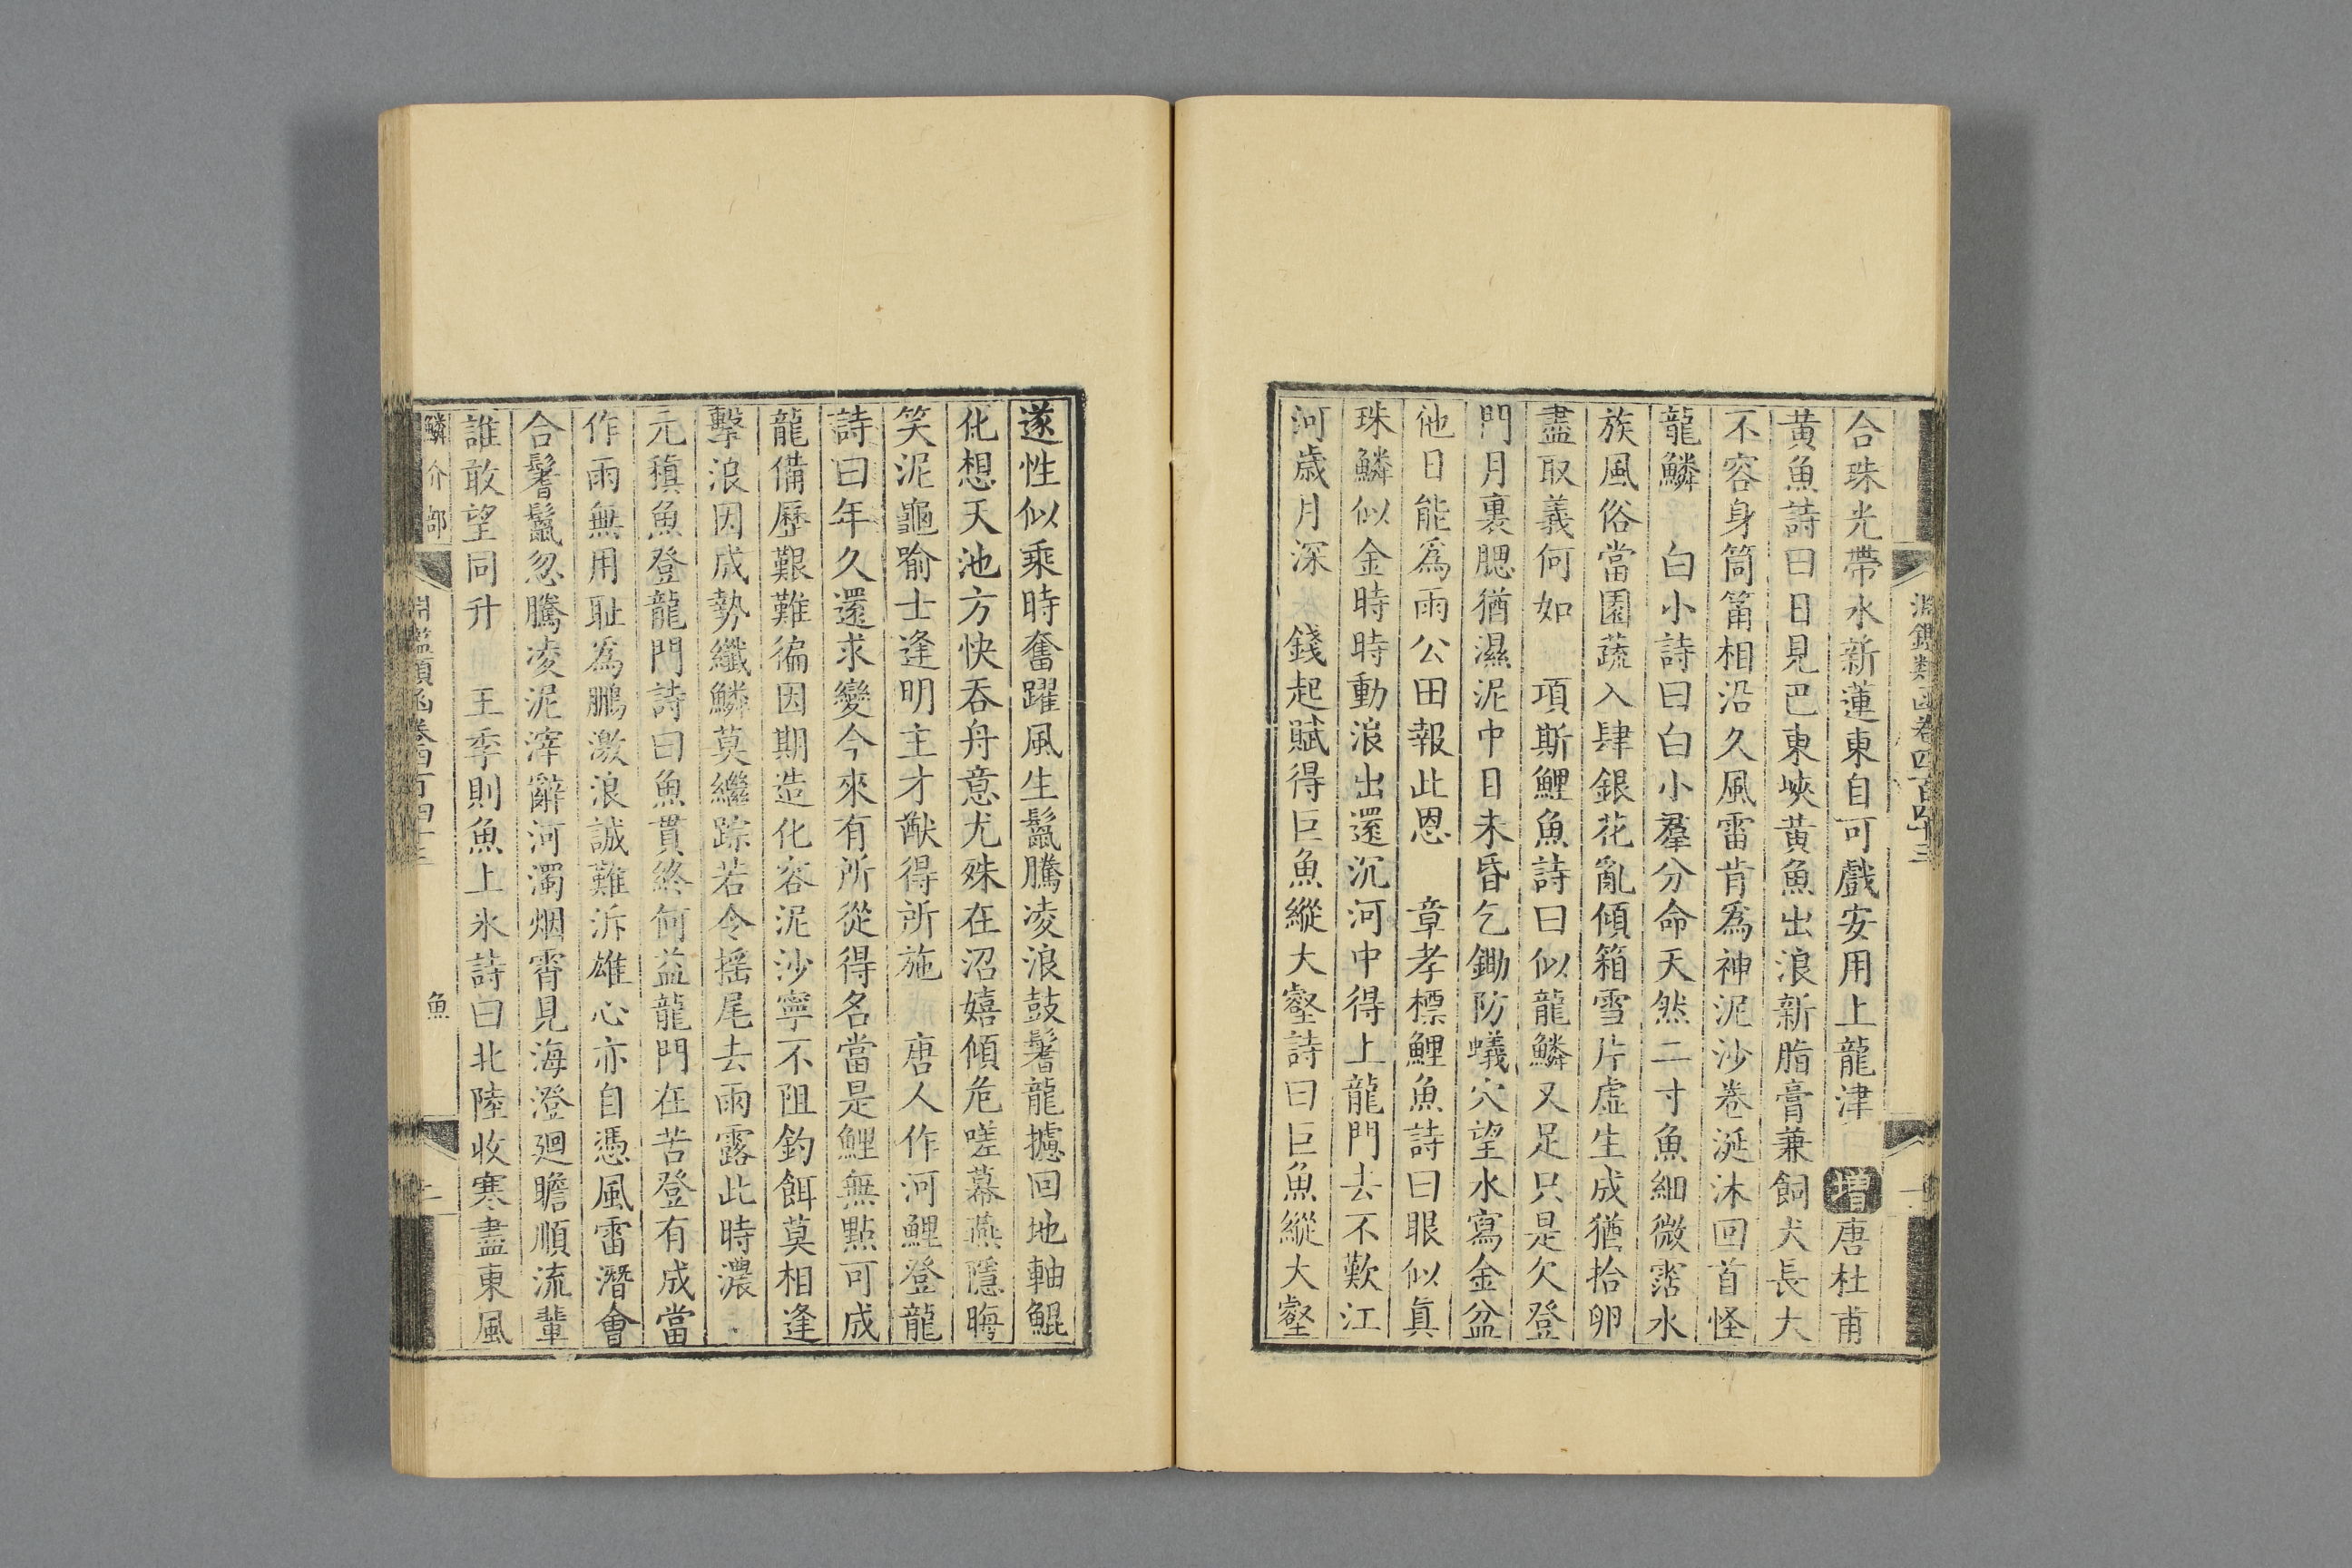 淵鑑類函卷四百四十三
合珠光帶水新蓮東自可戲安用上龍津 增唐杜甫
黃魚詩曰日見巴東峽黃魚出浪新脂膏兼飼犬長大
不容身筒筩相沿久風雷肯爲神泥沙卷涎沫回首怪
龍鱗 白小詩曰白小羣分命天然二寸魚細微霑水
族風俗當園蔬入肆銀花亂傾箱雪片虛生成猶拾卵
盡取義何如 項斯鯉魚詩曰似龍鱗又足只是欠登
門月裏腮猶濕泥中目未昏乞鋤防蟻穴望水寫金盆
他日能爲雨公田報此恩 章孝標鯉魚詩曰眼似眞
珠鱗似金時時動浪出還沉河中得上龍門去不歎江
河歲月深 錢起賦得巨魚縱大壑詩曰巨魚縱大壑
遂性似乘時奮躍風生鬣騰凌浪鼓鬐龍攄回地軸鯤
化想天池方快吞舟意尤殊在沼嬉傾危嗟幕燕隱晦
笑泥龜喻士逢明主才猷得所施 唐人作河鯉登龍
詩曰年久還求變今來有所從得名當是鯉無點可成
龍備歷艱難徧因期造化容泥沙寧不阻釣餌莫相逢
擊浪因成勢纖鱗莫繼踪若令搖尾去雨露此時濃
元稹魚登龍門詩曰魚貫終何益龍門在苦登有成當
作雨無用耻爲鵬激浪誠難泝雄心亦自憑風雷潛會
合鬐鬣忽騰凌泥滓辭河濁烟霄見海澄迴瞻順流輩
誰敢望同升 王季則魚上氷詩曰北陸收寒盡東風
鱗介部 淵鑑類函卷四百四十三 魚